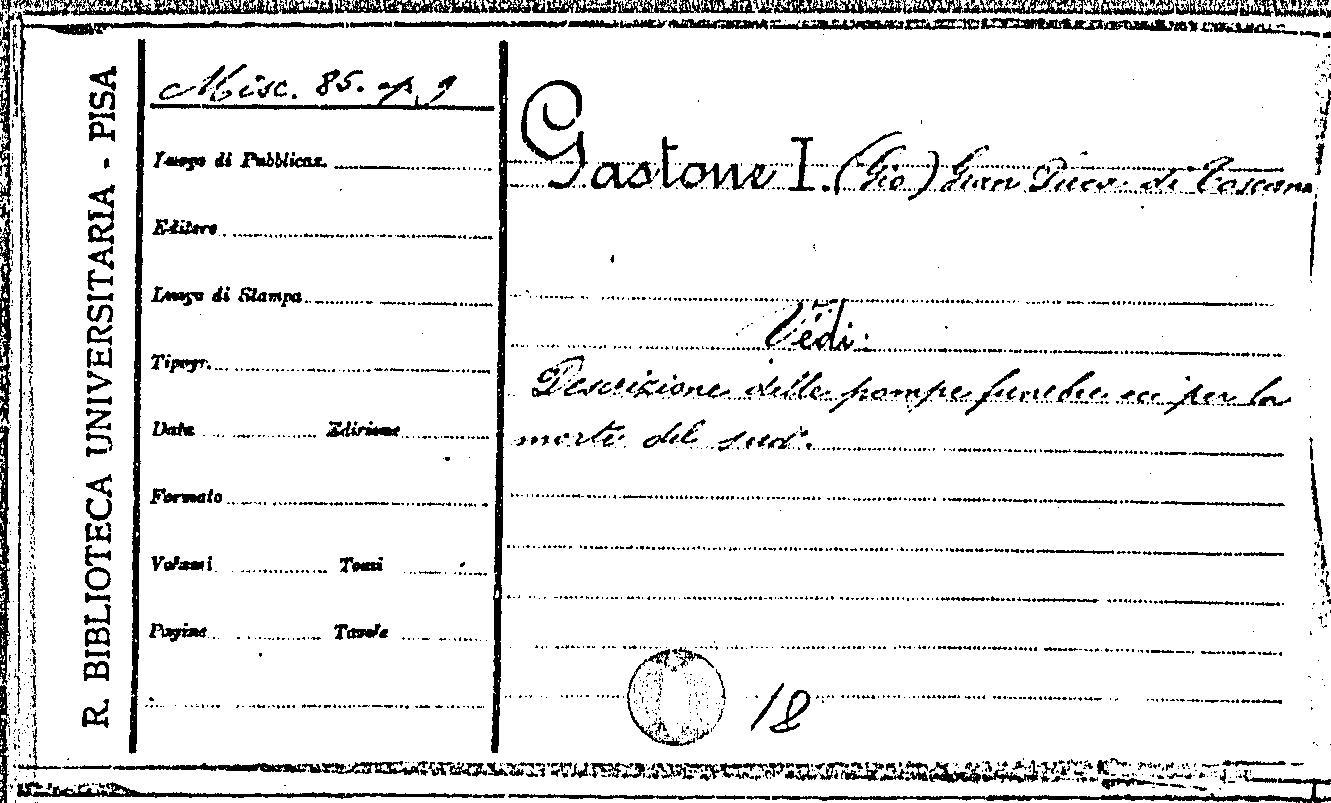 R. BIBLIOTECA UNIVERSITARIA - PISA
Misc. 85. op. 9
Luogo di Pubblicaz.
Editore
Luogo di Stampa
Tipogr.
Data Edizione
Formato
Volumi Tomi
Pagine Tavole
Gastone I. (Gio) Gran Duca di Toscana
Vedi:
Descrizione delle pompe funebri per la
morte del sud.
18